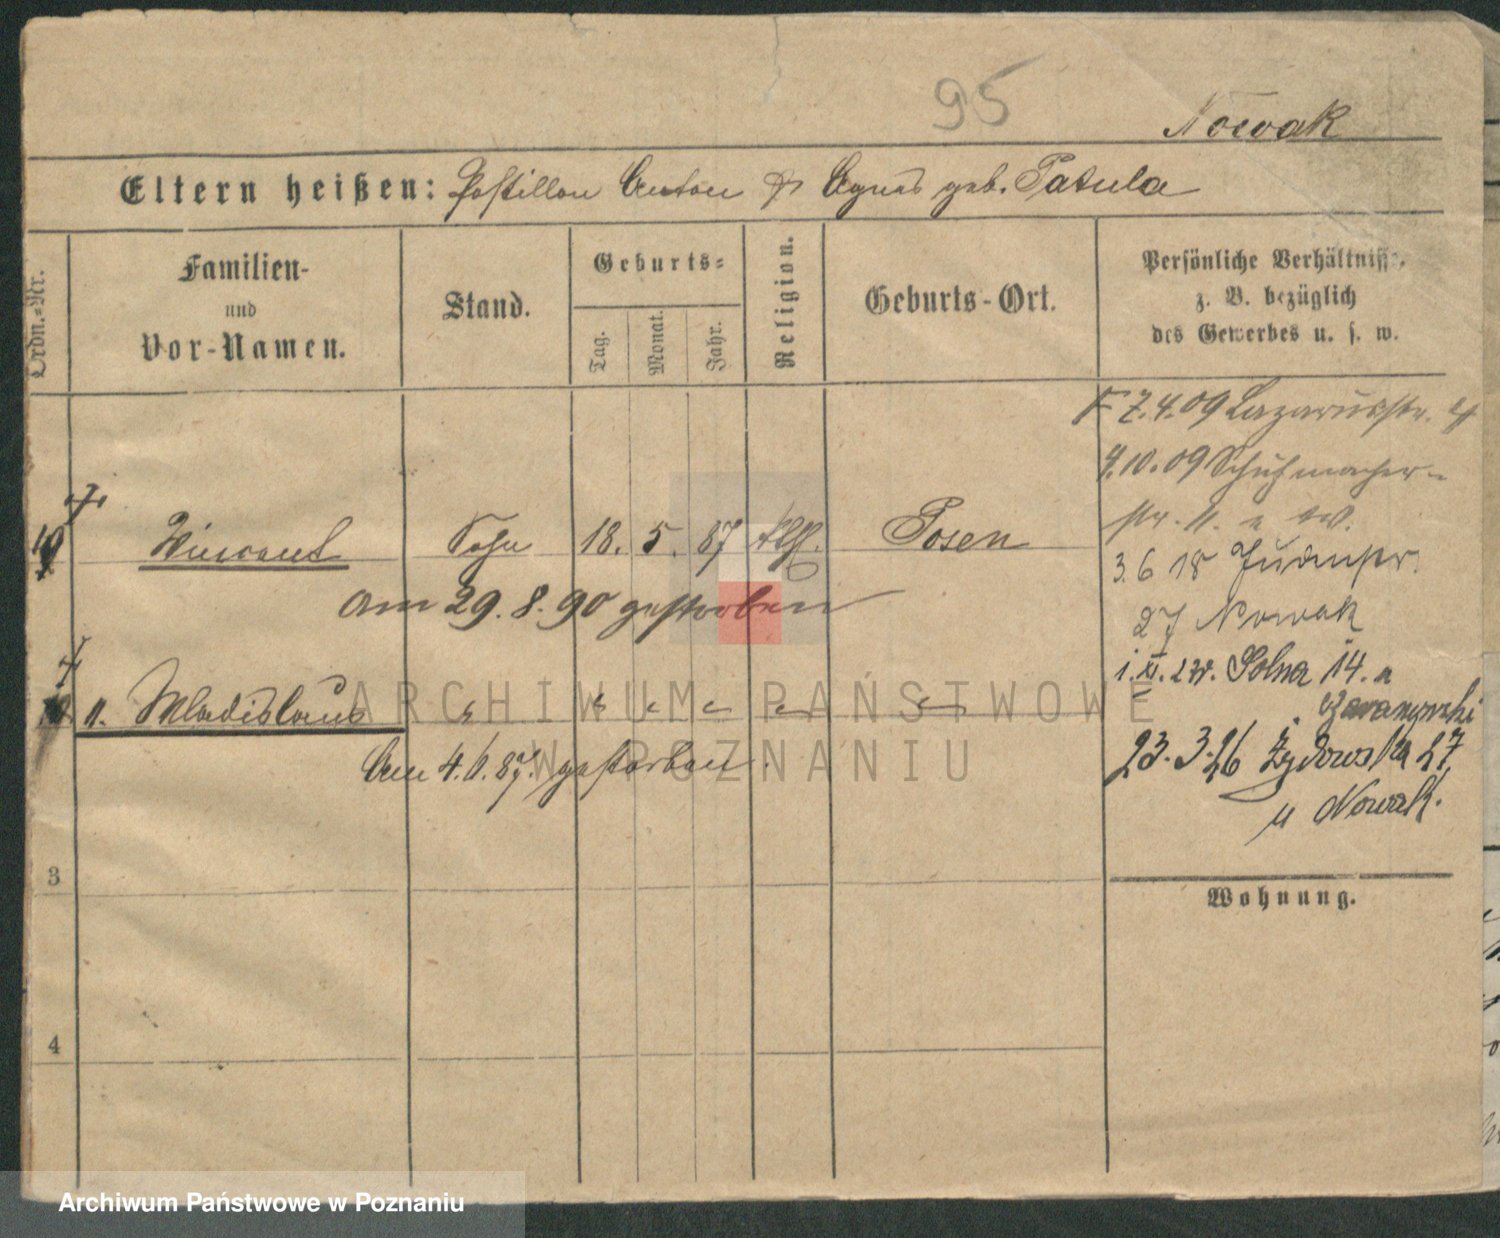 95
Nowak
Eltern heißen: Postillon Anton & Agnes geb. Patula
Ordn.-Nr.
Familien- und Vor-Namen.
Stand.
Geburts-
Tag. Monat. Jahr.
Religion.
Geburts-Ort.
Persönliche Verhältnisse,
z. B. bezüglich
des Gewerbes u. s. w.
7.4.09 Lazarusstr. 4
4.10.09 Schuhmacher-
str. 11.
10 Vincent Sohn 18. 5. 87 kth. Posen
3.6 18 Judenstr.
am 29.8.90 gestorben
27 Nowak
1. XI. Solna 14. u
11. Wladislaus " " " " " "
23.3.26 Żydowska 27
Am 4.6.87. gestorben.
u Nowak.
3
Wohnung.
4
ARCHIWUM PAŃSTWOWE
W POZNANIU
Archiwum Państwowe w Poznaniu